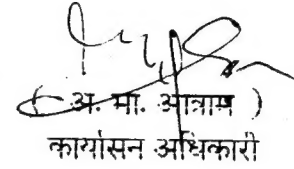 ( अ. मा. आत्राम )
कार्यासन अधिकारी